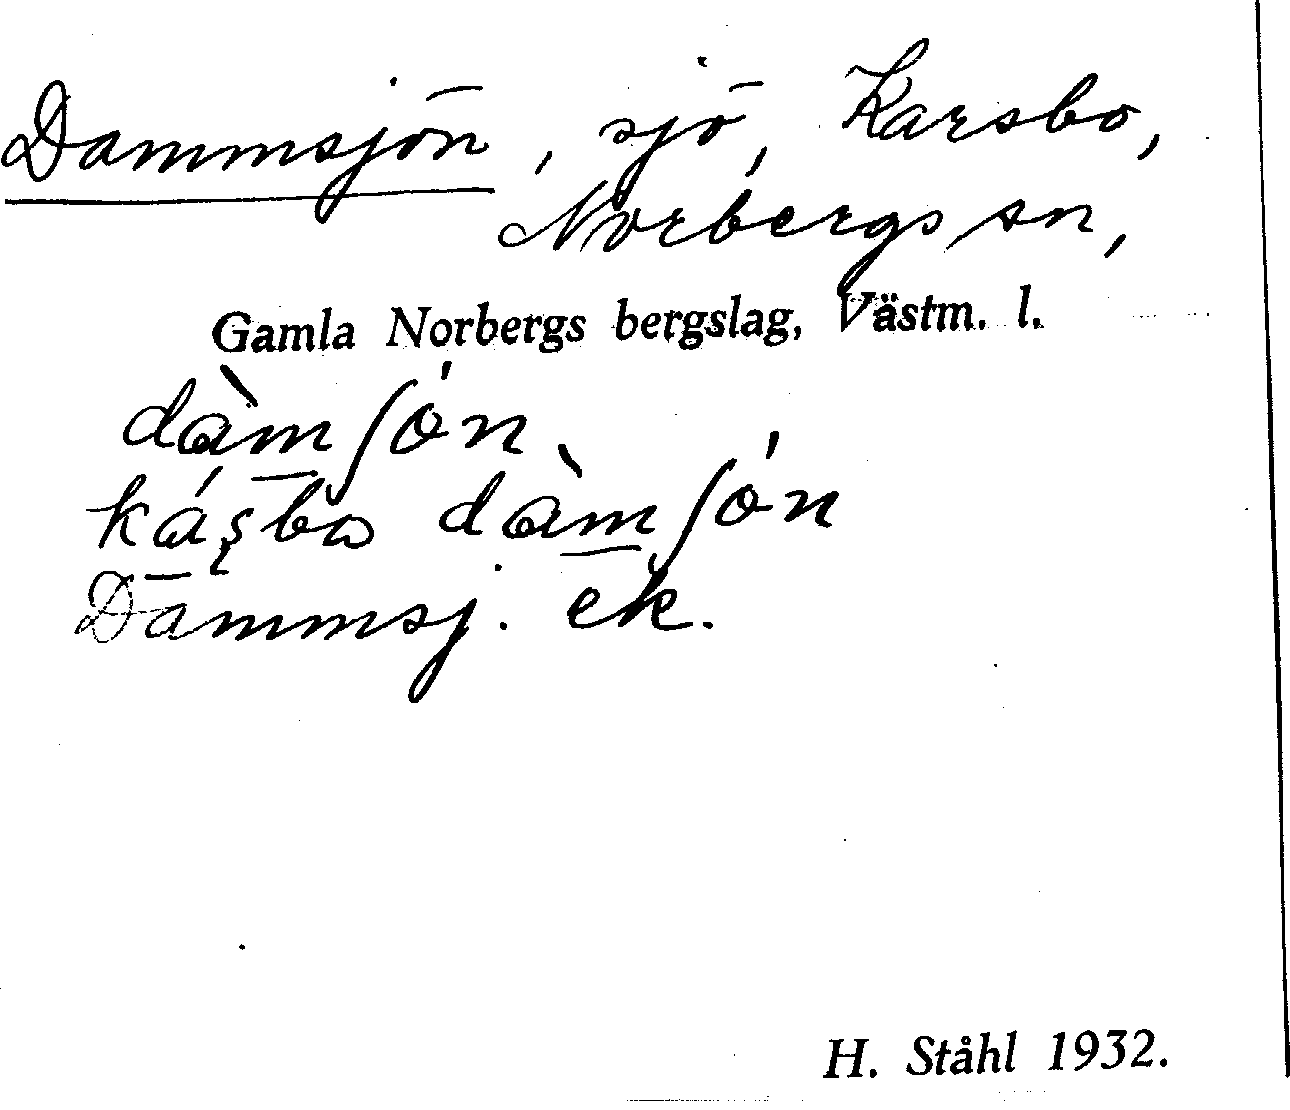 Dammsjön, sjö, Karsbo,
Norbergs sn,
Gamla Norbergs bergslag, Västm. l.
dàmʃó̵n
káʂbo dàmʃó̵n
Dammsj. ek.
H. Ståhl 1932.